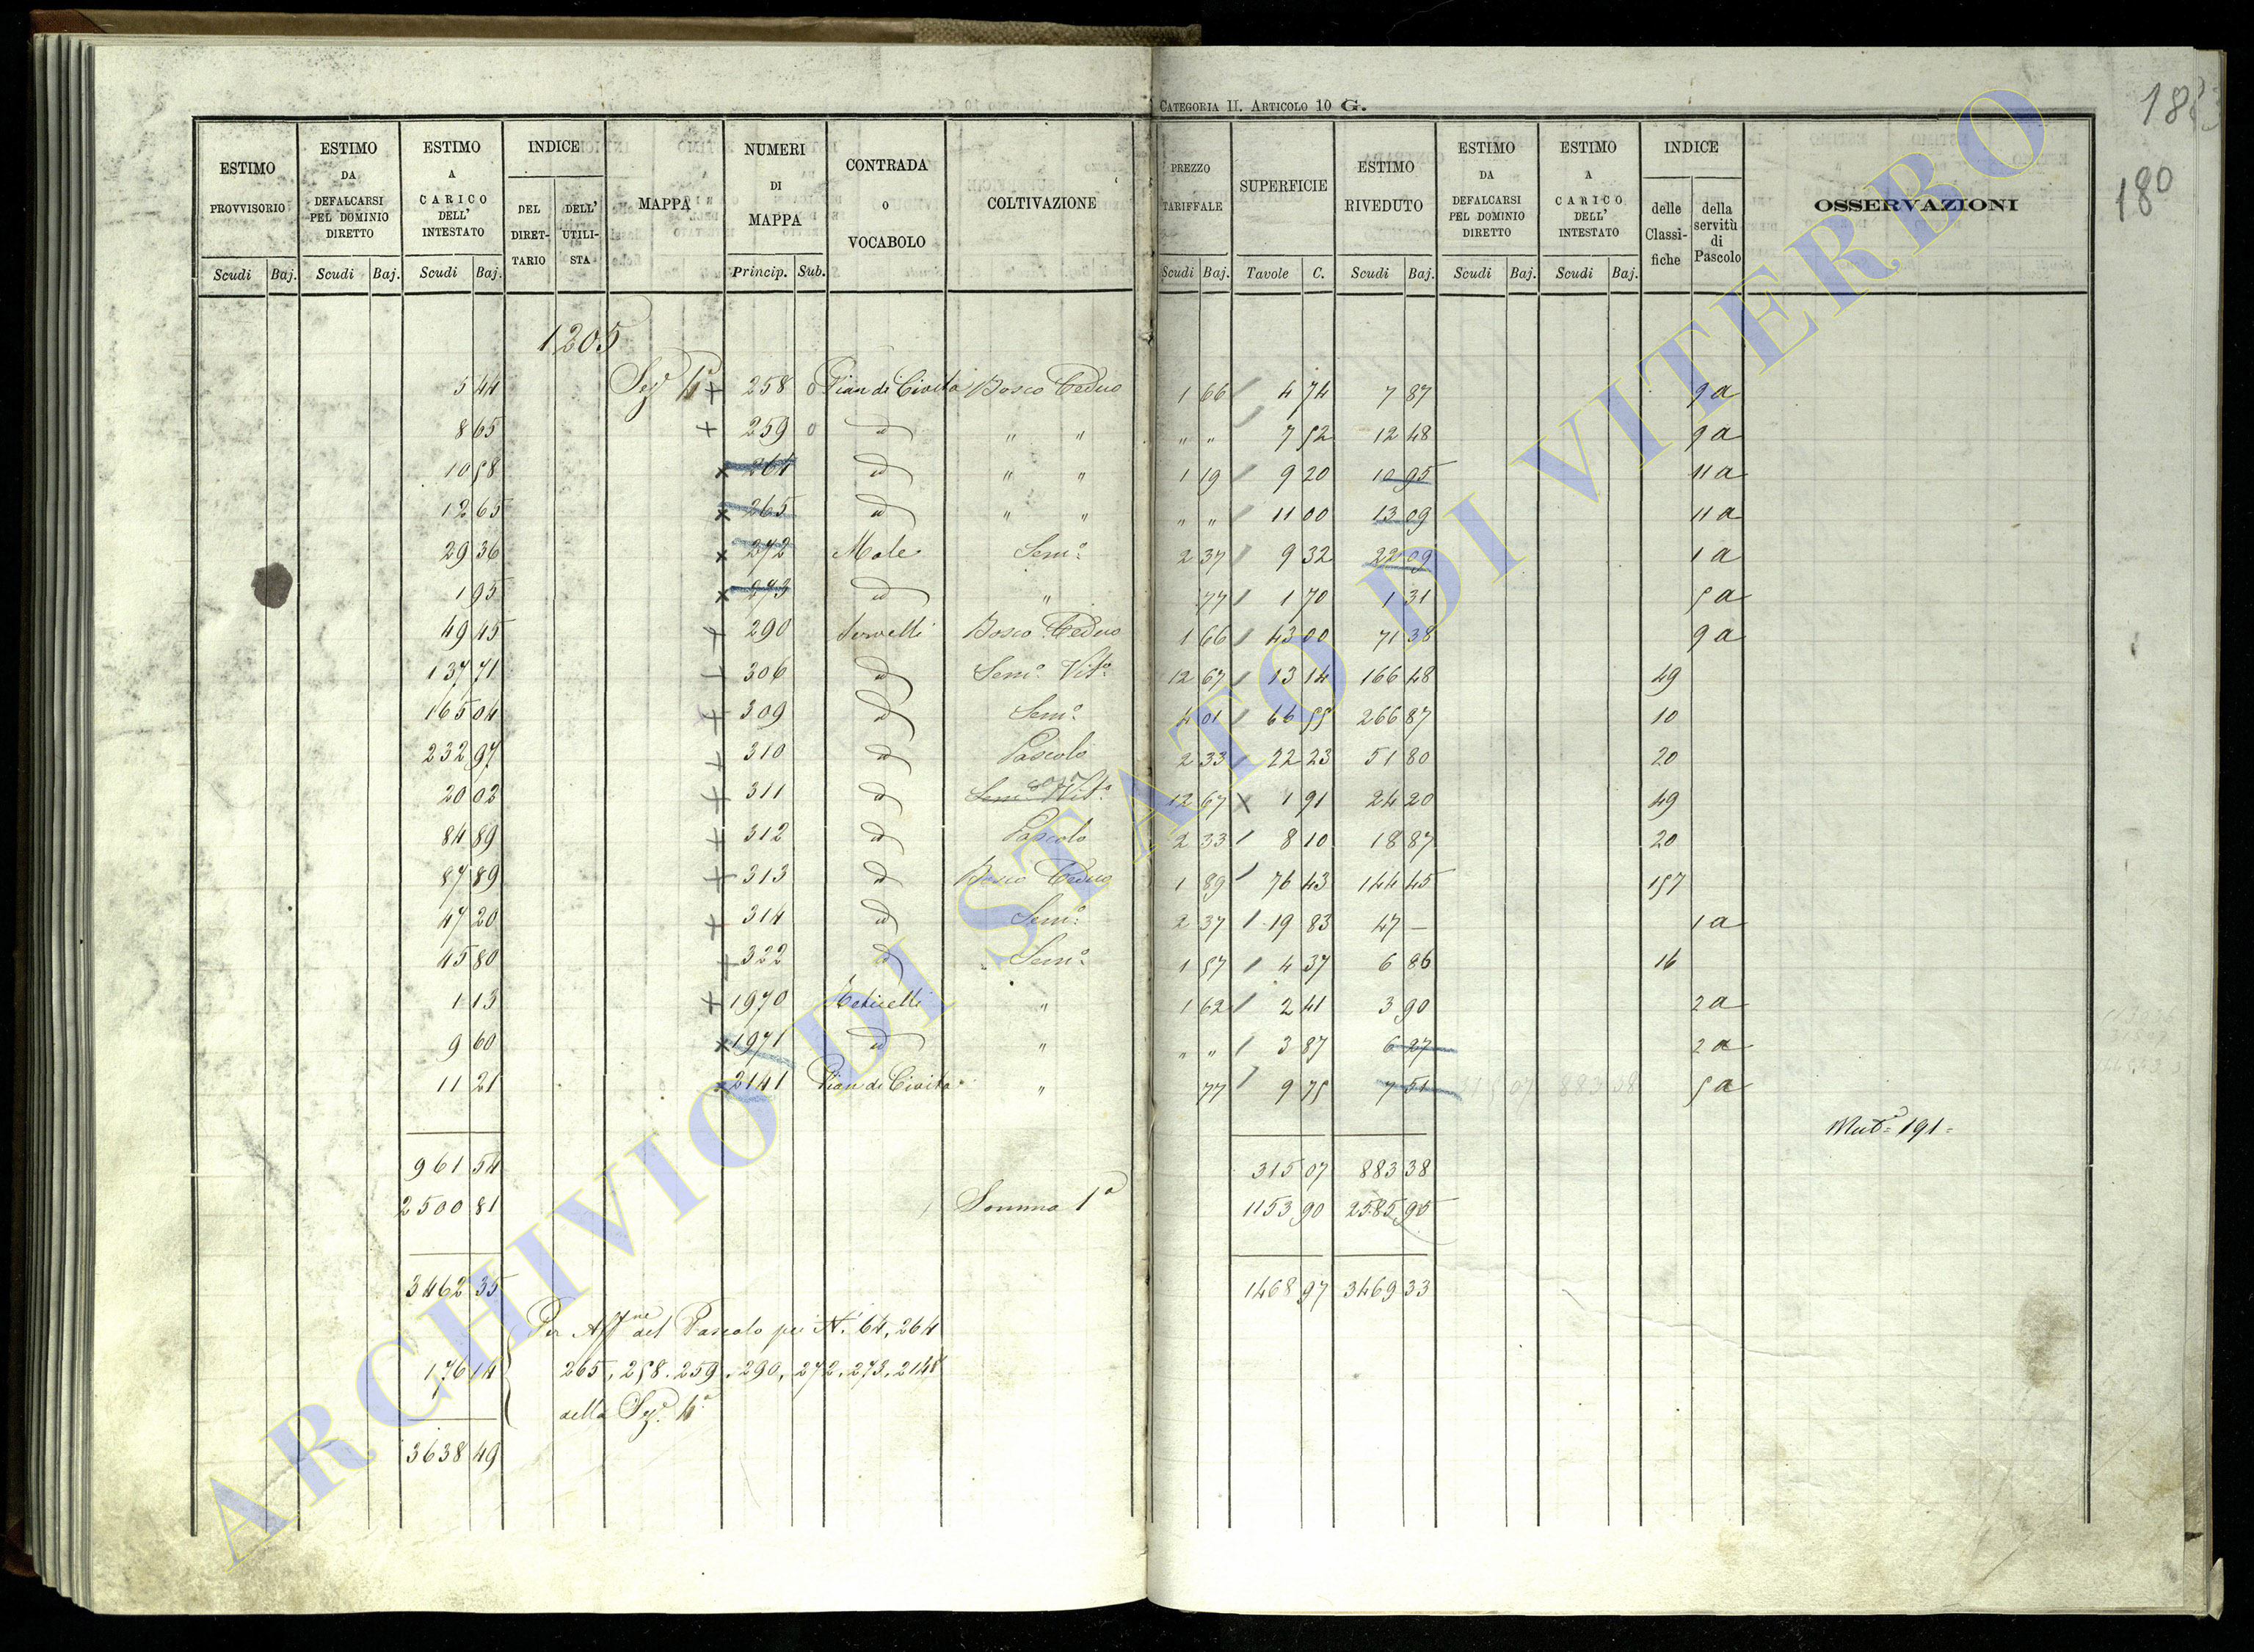 CATEGORIA II. ARTICOLO 10 G.
183
180
ESTIMO PROVVISORIO Scudi Baj.
ESTIMO DA DEFALCARSI PEL DOMINIO DIRETTO Scudi Baj.
ESTIMO A CARICO DELL' INTESTATO Scudi Baj.
INDICE DEL DIRETTARIO DELL' UTILISTA
MAPPA
NUMERI DI MAPPA Princip. Sub.
CONTRADA o VOCABOLO
COLTIVAZIONE
PREZZO TARIFFALE Scudi Baj.
SUPERFICIE Tavole C.
ESTIMO RIVEDUTO Scudi Baj.
ESTIMO DA DEFALCARSI PEL DOMINIO DIRETTO Scudi Baj.
ESTIMO A CARICO DELL' INTESTATO Scudi Baj.
INDICE delle Classifiche della servitù di Pascolo
OSSERVAZIONI
1205
5 44 Sez. 4ª + 258 0 Pian di Civita Bosco Ceduo 1 66 4 74 7 87 9 a
8 65 + 259 0 id " " " " 7 52 12 48 9 a
10 58 x 264 id " " 1 19 9 20 10 95 11 a
12 65 x 265 id " " " " 11 00 13 09 11 a
29 36 x 272 Mole Semo 2 37 9 32 22 09 1 a
1 95 x 273 id " 77 1 70 1 31 5 a
49 45 + 290 Bosco Ceduo 1 66 43 00 71 38 9 a
137 71 + 306 id Semo Vito 12 67 13 14 166 48 49
165 04 + 309 id Semo 4 01 66 55 266 87 10
232 97 + 310 id Pascolo 2 33 22 23 51 80 20
20 02 + 311 id Semo Vito 12 67 x 1 91 24 20 49
84 89 + 312 id Pascolo 2 33 8 10 18 87 20
87 89 + 313 id Bosco Ceduo 1 89 76 43 144 45 157
47 20 + 314 id Semo 2 37 19 83 47 — 1 a
45 80 + 322 id Semo 1 57 4 37 6 86 16
1 13 + 1970 " 1 62 2 41 3 90 2 a
9 60 x 1971 id " " " 3 87 6 27 2 a
11 21 x 2141 Pian di Civita " 77 9 75 7 51 5 a
Muta = 191 =
961 54 315 07 883 38
2500 81 Somma 1ª 1153 90 2585 95
3462 35 1468 97 3469 33
Per Affne del Pascolo pei N. 64, 264
176 14 265, 258, 259, 290, 272, 273, 2141
della Sez. 4ª
3638 49
ARCHIVIO DI STATO DI VITERBO